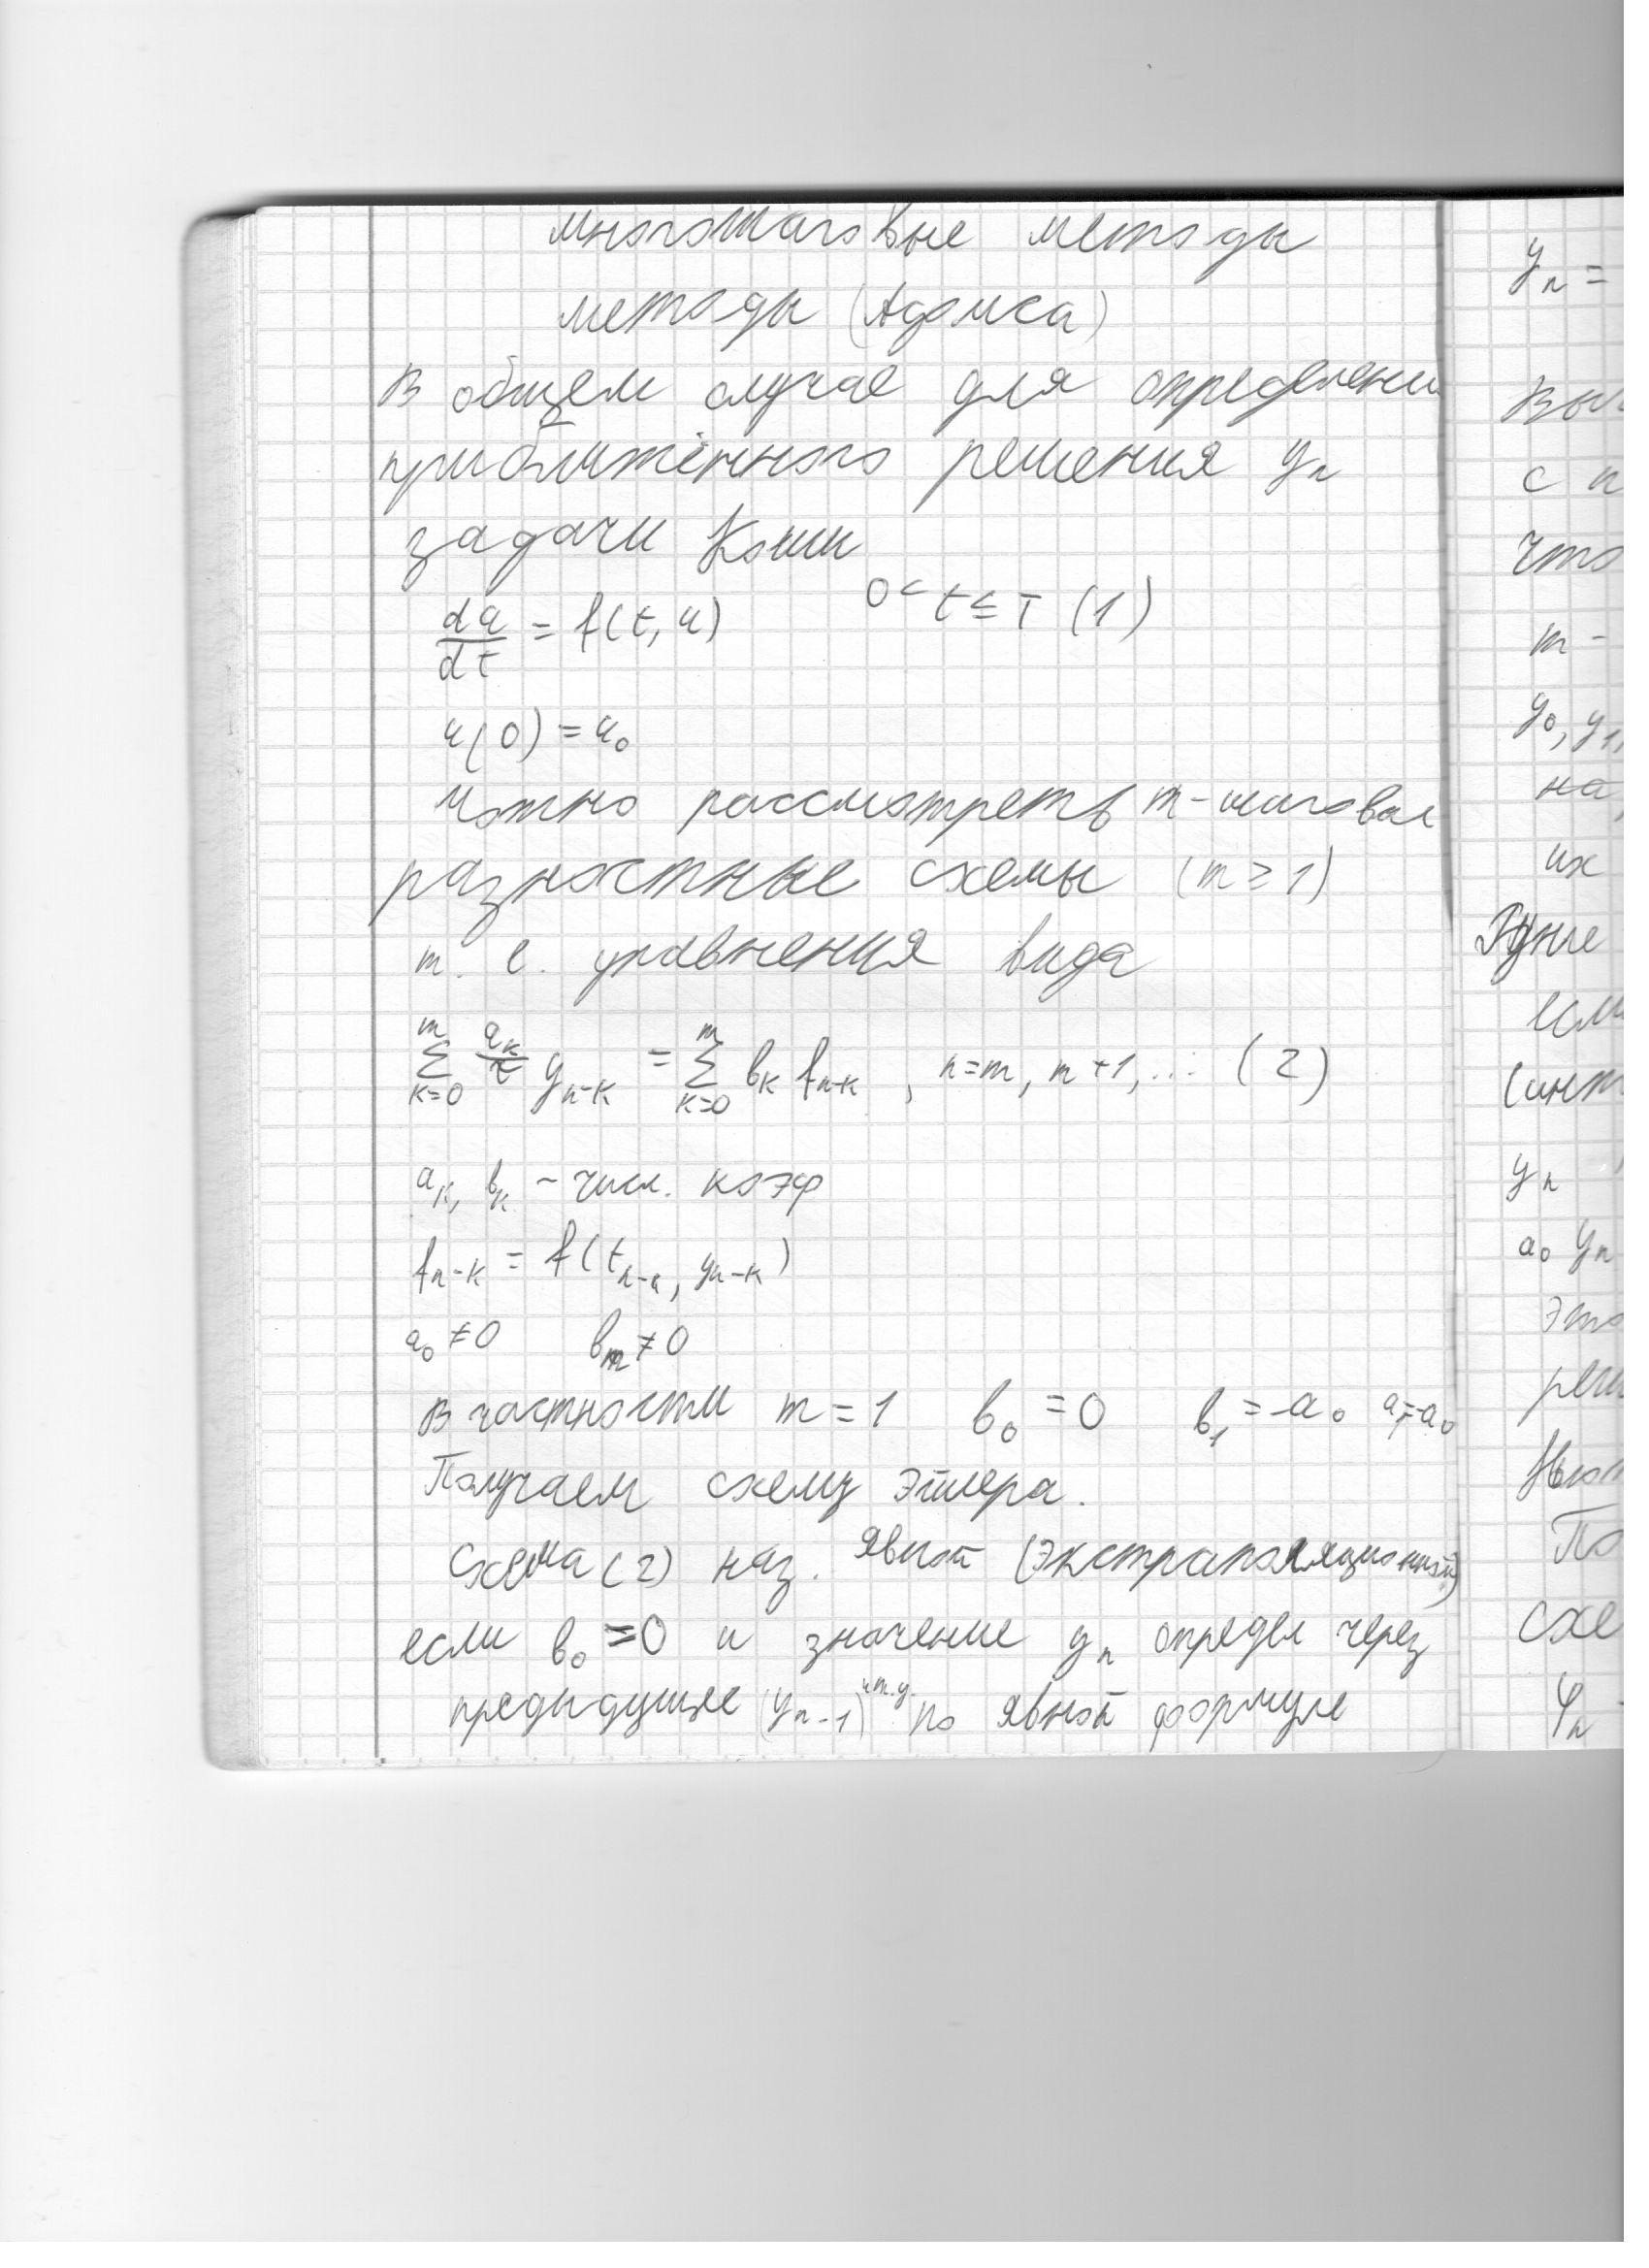 многошаговые методы
методы (Адамса)
В общем случае для определени
приближённого решения yₙ
задачи Коши
du/dt = f(t, u)   0 < t ≤ T (1)
u(0) = u₀
можно рассмотреть m-шаговые
разностные схемы (m ≥ 1)
т. е. уравнения вида
∑ₖ₌₀ᵐ aₖ/τ yₙ₋ₖ = ∑ₖ₌₀ᵐ bₖ fₙ₋ₖ , n=m, m+1,... (2)
aₖ, bₖ - числ. коэф
fₙ₋ₖ = f(tₙ₋ₖ, yₙ₋ₖ)
a₀ ≠ 0   bₘ ≠ 0
В частности m = 1   b₀ = 0   b₁ = -a₀   a₁=-a₀
Получаем схему Эйлера.
Схема (2) наз. явной (экстраполяционной)
если b₀ = 0 и значение yₙ определ через
предыдущие (yₙ₋₁) и т.д. по явной формуле
yₙ =
с п
что
m -
y₀, y₁,
на,
их
Рунге
если
(инт
yₙ
a₀ yₙ
это
реш
Ньют
По
схе
φₙ